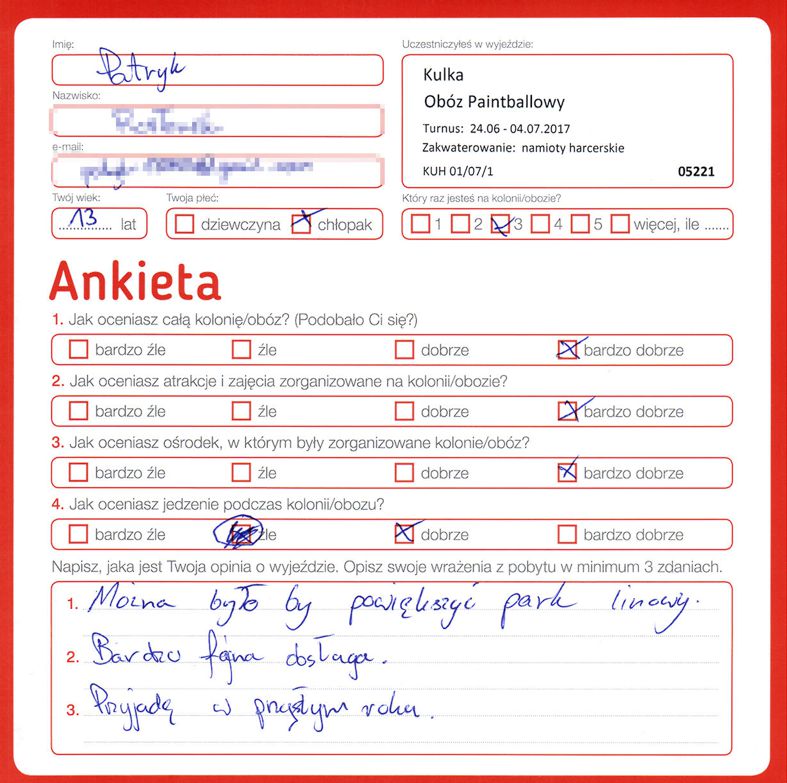 Imię:
Patryk
Nazwisko:
e-mail:
Twój wiek:
13 lat
Twoja płeć:
dziewczyna chłopak
Uczestniczyłeś w wyjeździe:
Kulka
Obóz Paintballowy
Turnus: 24.06 - 04.07.2017
Zakwaterowanie: namioty harcerskie
KUH 01/07/1 05221
Który raz jesteś na kolonii/obozie?
1 2 3 4 5 więcej, ile .......
Ankieta
1. Jak oceniasz całą kolonię/obóz? (Podobało Ci się?)
bardzo źle źle dobrze bardzo dobrze
2. Jak oceniasz atrakcje i zajęcia zorganizowane na kolonii/obozie?
bardzo źle źle dobrze bardzo dobrze
3. Jak oceniasz ośrodek, w którym były zorganizowane kolonie/obóz?
bardzo źle źle dobrze bardzo dobrze
4. Jak oceniasz jedzenie podczas kolonii/obozu?
bardzo źle źle dobrze bardzo dobrze
Napisz, jaka jest Twoja opinia o wyjeździe. Opisz swoje wrażenia z pobytu w minimum 3 zdaniach.
1. Można było by powiększyć park linowy.
2. Bardzo fajna obsługa.
3. Przyjadę w przyszłym roku.